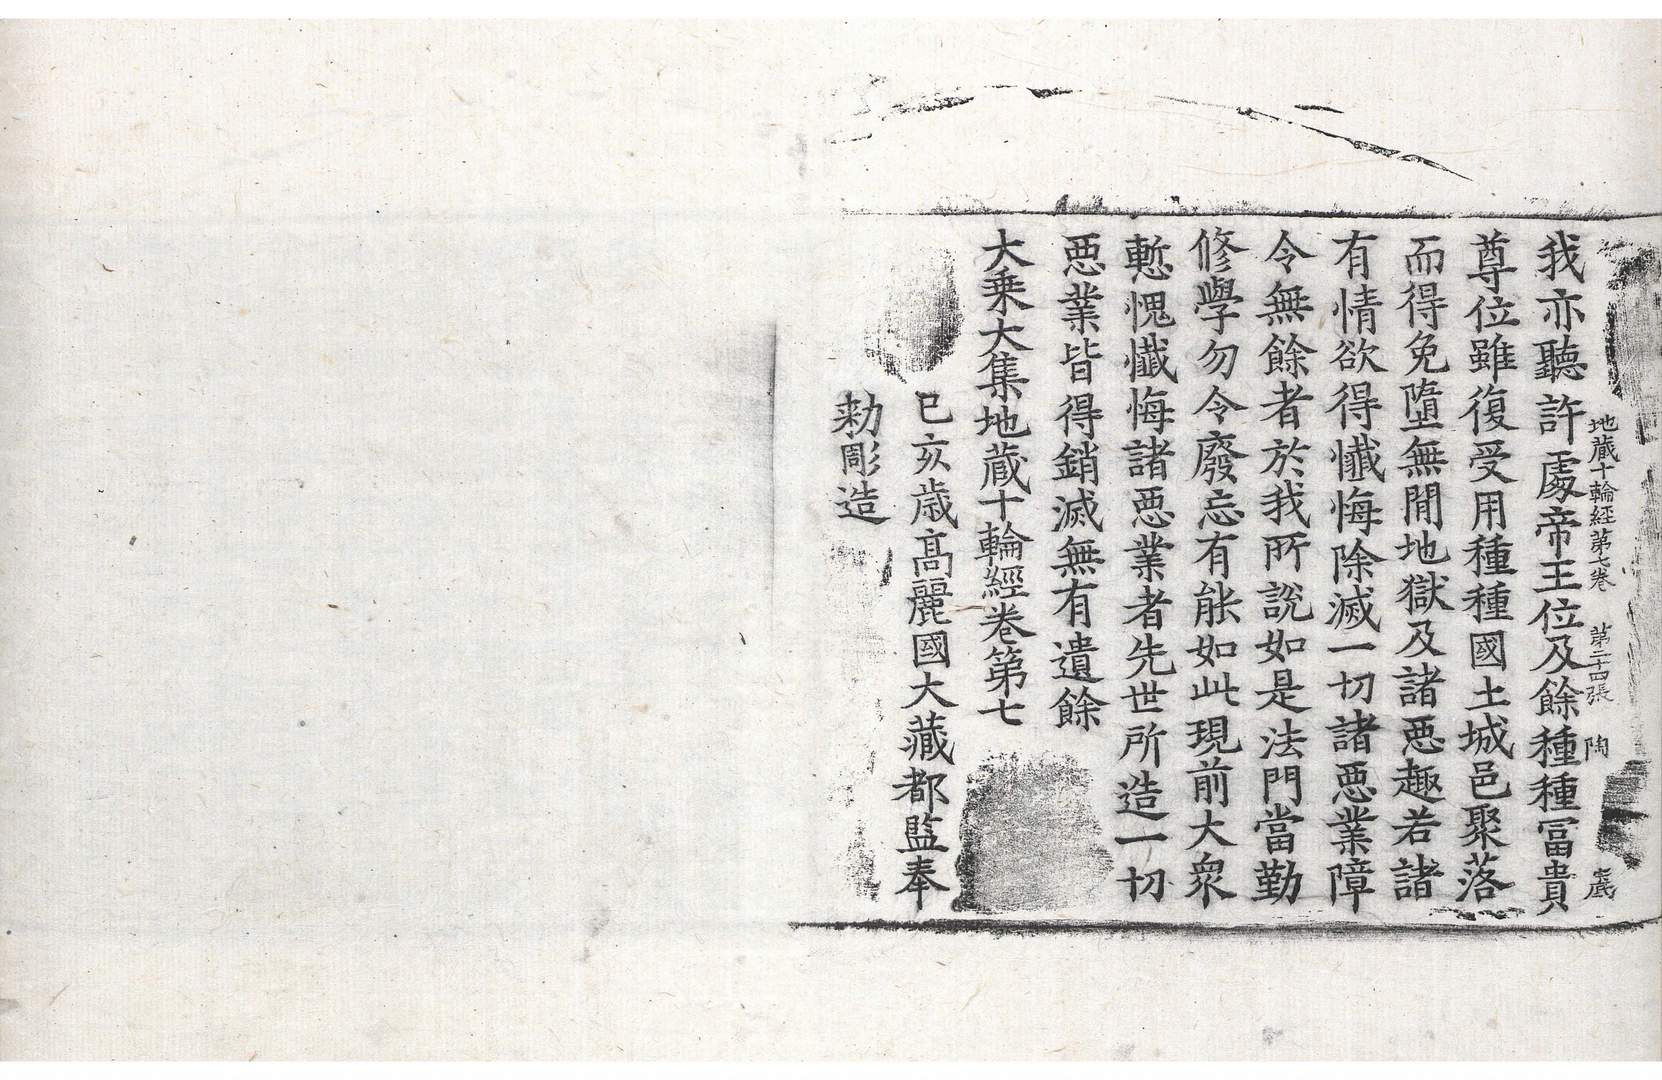 地蔵十輪経第七巻 第二十四張 陶 㡳
我亦聽許處帝王位及餘種種冨貴
尊位雖復受用種種國土城邑聚落
而得免墮無閒地獄及諸惡趣若諸
有情欲得懺悔除滅一切諸惡業障
令無餘者於我所說如是法門當勤
修學勿令廢忘有能如此現前大衆
慙愧懺悔諸惡業者先世所造一切
惡業皆得銷滅無有遺餘
大乗大集地蔵十輪經卷第七
己亥歳髙麗國大藏都監奉
勑彫造